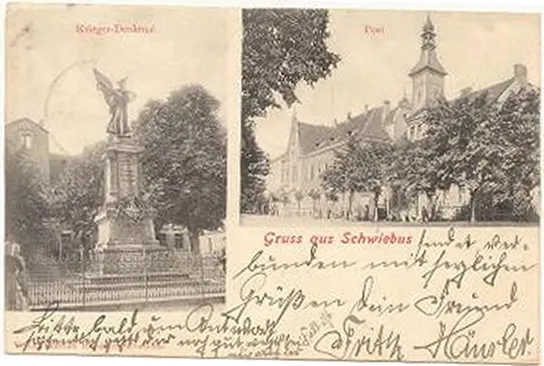 Krieger-Denkmal
Post
Gruss aus Schwiebus
sendet ver-
bunden mit herzlichen
Grüßen Dein Freund
Fritz Häusler
Bitte, bald um Antwort
noch gut